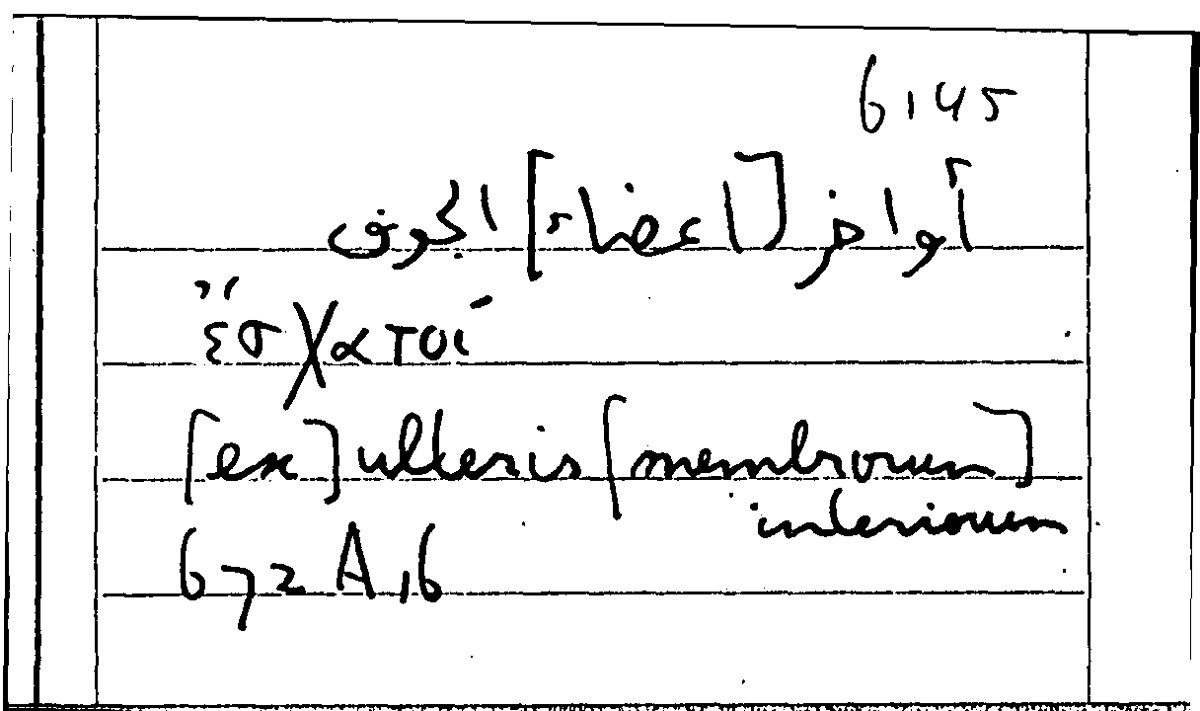 6145
أواخر [اعضاء] الجوف
ἔσχατοί
[ex] ulteris [membrorum]
interiorum
672 A 16